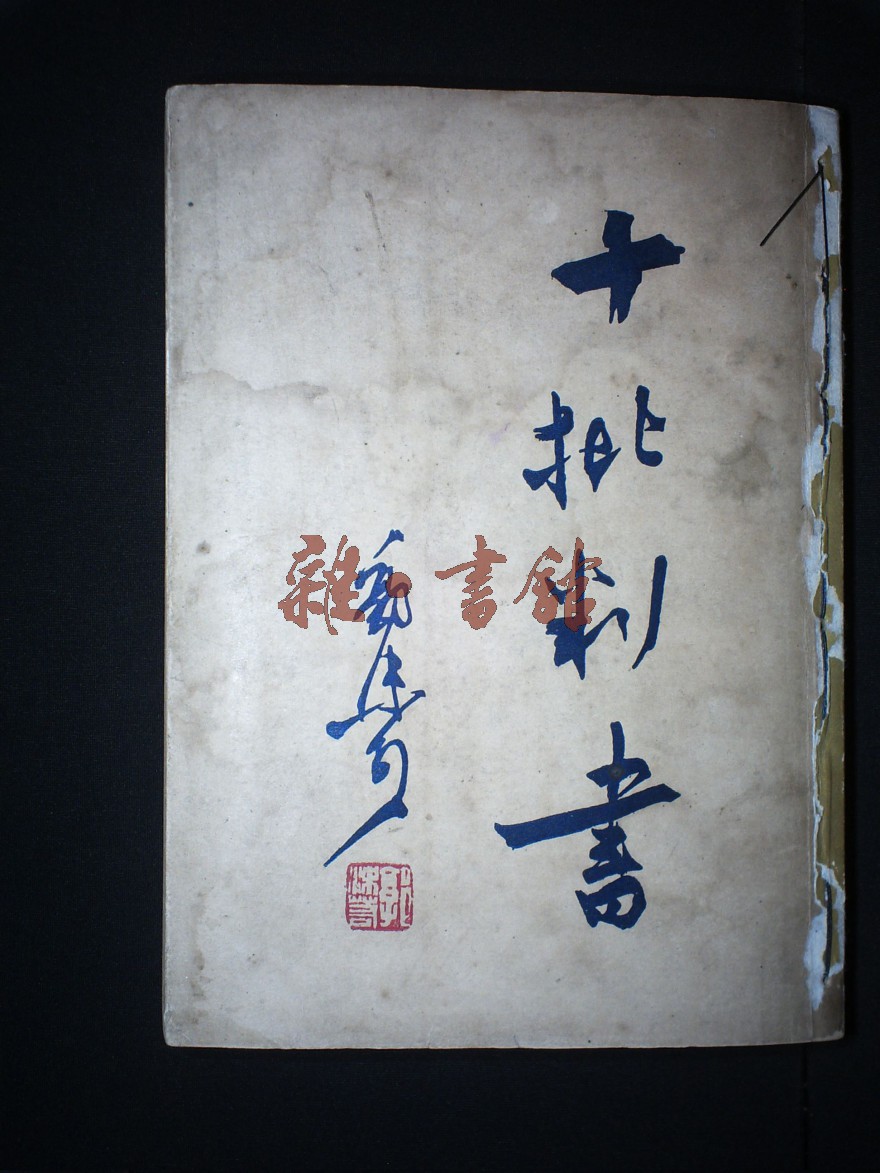 十批判書
郭沫若
郭沫若
雜·書館